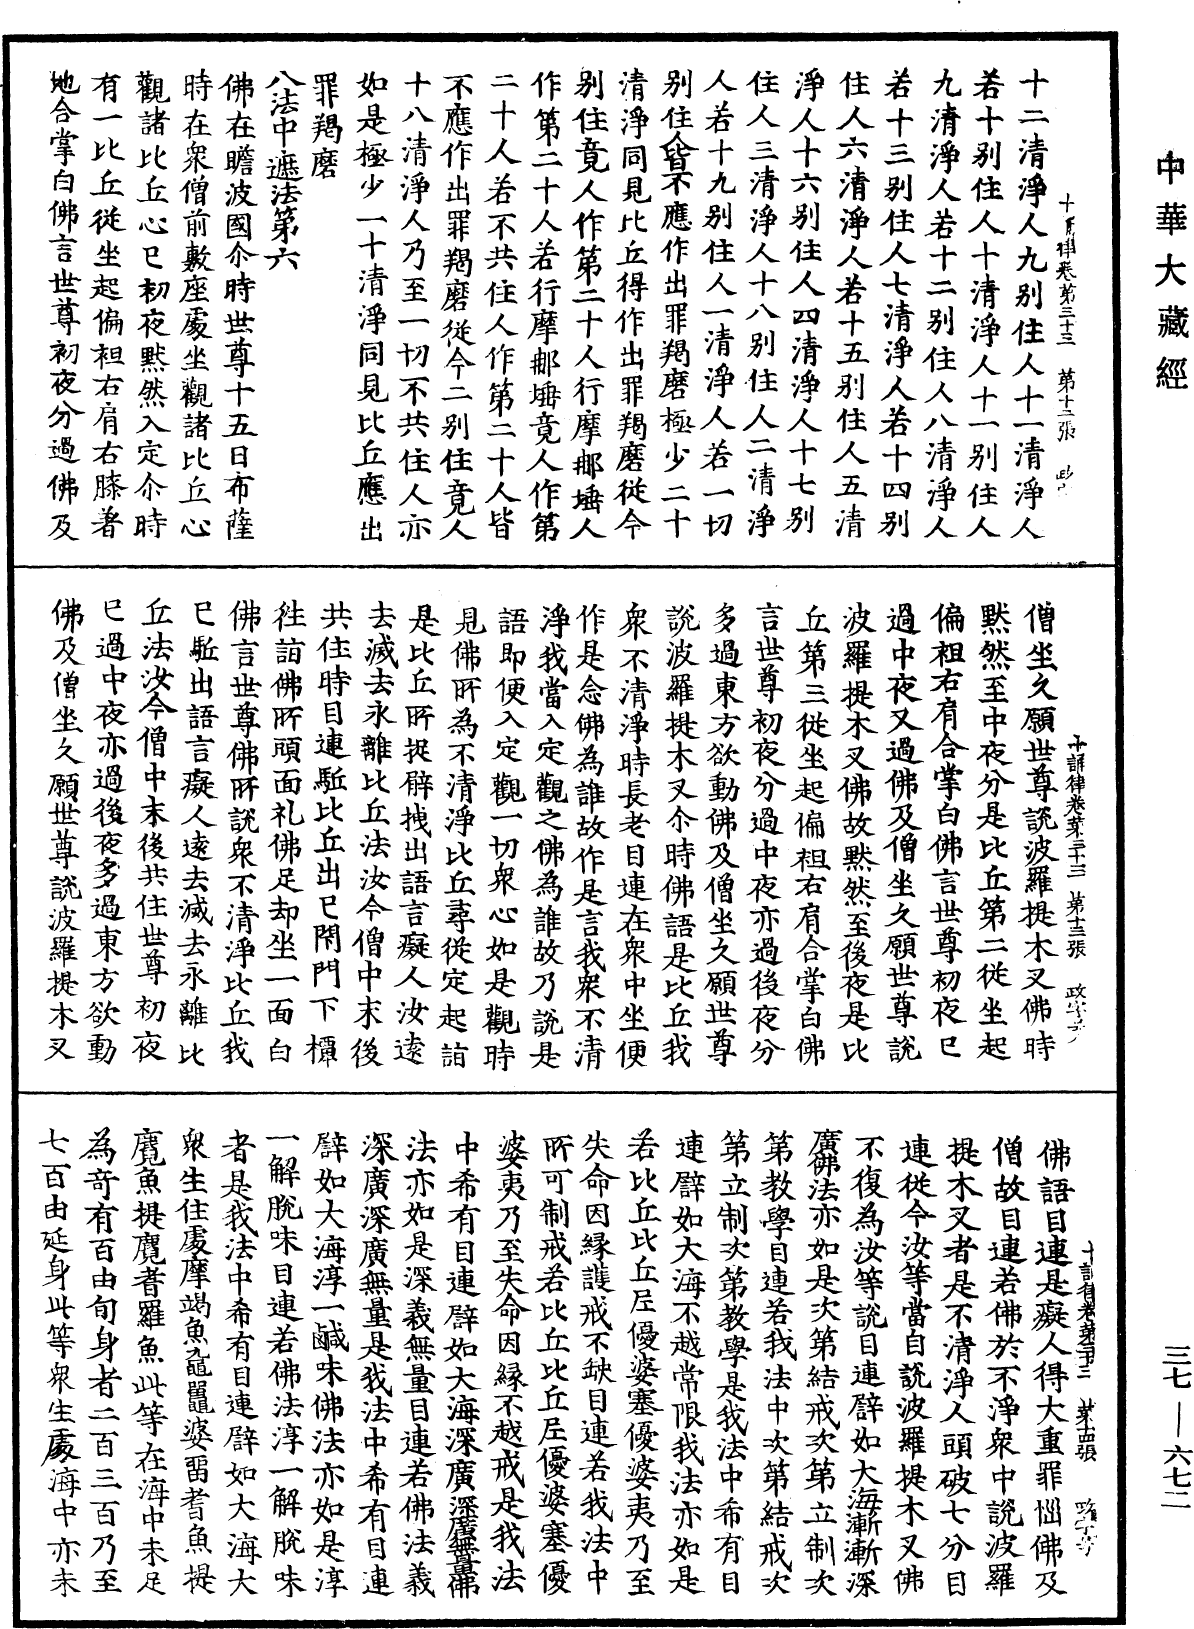 中華大藏經
十二清淨人九別住人十一清淨人
若十別住人十清淨人十一別住人
九清淨人若十二別住人八清淨人
若十三別住人七清淨人若十四別
住人六清淨人若十五別住人五清
淨人十六別住人四清淨人十七別
住人三清淨人十八別住人二清淨
人若十九別住人一清淨人若一切
別住人皆不應作出罪羯磨極少二十
清淨同見比丘得作出罪羯磨從今
別住竟人作第二十人行摩那埵人
作第二十人若行摩那埵竟人作第
二十人若不共住人作第二十人皆
不應作出罪羯磨從今二別住竟人
十八清淨人乃至一切不共住人亦
如是極少一十清淨同見比丘應出
罪羯磨
八法中遮法第六
佛在瞻波國尒時世尊十五日布薩
時在眾僧前敷座處坐觀諸比丘心
觀諸比丘心已初夜默然入定尒時
有一比丘從坐起偏袒右肩右膝著
地合掌白佛言世尊初夜分過佛及
十誦律卷第三十三　第十二張
僧坐久願世尊說波羅提木叉佛時
默然至中夜分是比丘第二從坐起
偏袒右肩合掌白佛言世尊初夜已
過中夜又過佛及僧坐久願世尊說
波羅提木叉佛故默然至後夜是比
丘第三從坐起偏袒右肩合掌白佛
言世尊初夜分過中夜亦過後夜分
多過東方欲動佛及僧坐久願世尊
說波羅提木叉尒時佛語是比丘我
眾不清淨時長老目連在眾中坐便
作是念佛為誰故作是言我眾不清
淨我當入定觀之佛為誰故乃說是
語即便入定觀一切眾心如是觀時
見佛所為不清淨比丘尋從定起詣
是比丘所捉臂拽出語言癡人汝遠
去滅去永離比丘法汝今僧中末後
共住時目連駈比丘出已閉門下橝
徃詣佛所頭面礼佛足却坐一面白
佛言世尊佛所說眾不清淨比丘我
已駈出語言癡人遠去滅去永離比
丘法汝今僧中末後共住世尊初夜
已過中夜亦過後夜多過東方欲動
佛及僧坐久願世尊說波羅提木叉
十誦律卷第三十三　第十三張
佛語目連是癡人得大重罪惱佛及
僧故目連若佛於不淨眾中說波羅
提木叉者是不清淨人頭破七分目
連從今汝等當自說波羅提木叉佛
不復為汝等說目連譬如大海漸漸深
廣佛法亦如是次第結戒次第立制次
第教學目連若我法中次第結戒次
第立制次第教學是我法中希有目
連譬如大海不越常限我法亦如是
若比丘比丘尼優婆塞優婆夷乃至
失命因緣護戒不缺目連若我法中
所可制戒若比丘比丘尼優婆塞優
婆夷乃至失命因緣不越戒是我法
中希有目連譬如大海深廣深廣無量佛
法亦如是深義無量目連若佛法義
深廣深廣無量是我法中希有目連
譬如大海淳一鹹味佛法亦如是淳
一解脫味目連若佛法淳一解脫味
者是我法中希有目連譬如大海大
眾生住處摩竭魚黿鼉婆留耆魚提
麑魚提麑耆羅魚此等在海中未足
為奇有百由旬身者二百三百乃至
七百由延身此等眾生處海中亦未
十誦律卷第三十三　第十四張
三七—六七二